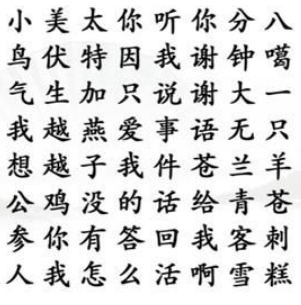 小美太你听你分八
鸟伏特因我谢钟噶
气生加只说谢大一
我越燕爱事语无只
想越子我件苍兰羊
公鸡没的话给青苍
参你有答回我客刺
人我怎么活啊雪糕